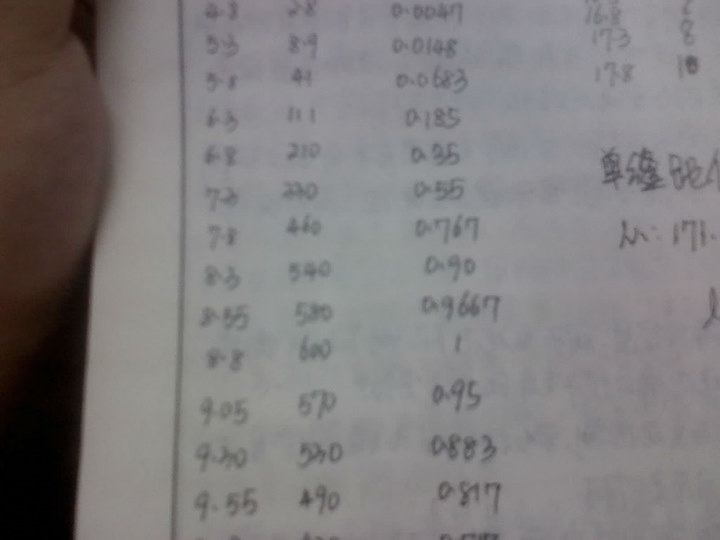 4.8 2.8 0.0047 16.8
5.3 8.9 0.0148 17.3 8
5.8 41 0.0683 17.8 10
6.3 111 0.185
6.8 210 0.35
7.3 330 0.55
7.8 460 0.767
8.3 540 0.90
8.55 580 0.9667
8.8 600 1
9.05 570 0.95
9.30 530 0.883
9.55 490 0.817
单缝距
171.